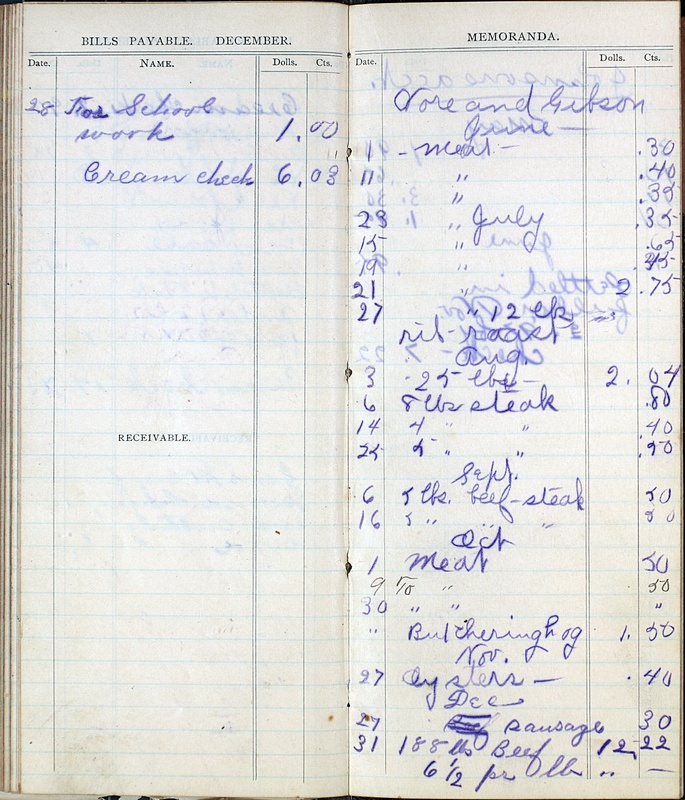 BILLS PAYABLE. DECEMBER.
Date. NAME. Dolls. Cts.
28 For School
work 1.00
Cream check 6.03
RECEIVABLE.
MEMORANDA.
Date. Dolls. Cts.
Vore and Gibson
June —
1 - meat - .30
11 " .40
" .35
23 " July .35
15 " .65
19 "
21 " 2.75
27 " 12 lb
rib roast
Aug.
3 25 lbs - 2.04
6 8 lbs steak .80
14 4 " " .40
25 5 " " .50
Sept.
6 5 lbs. beef-steak 50
16 5 " " 50
Oct
1 Meat 50
9 To " 50
30 " " "
" Butchering hog 1.50
Nov.
27 Oysters — .40
Dec
27 sausage 30
31 188 lbs Beef 12,22
6 1/2 pr lb " —